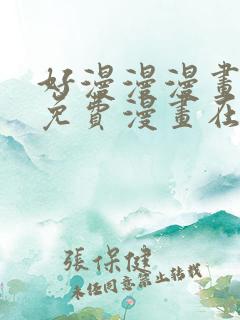 好漫漫漫畫
免費漫畫在
張保健
未任同意禁止转載